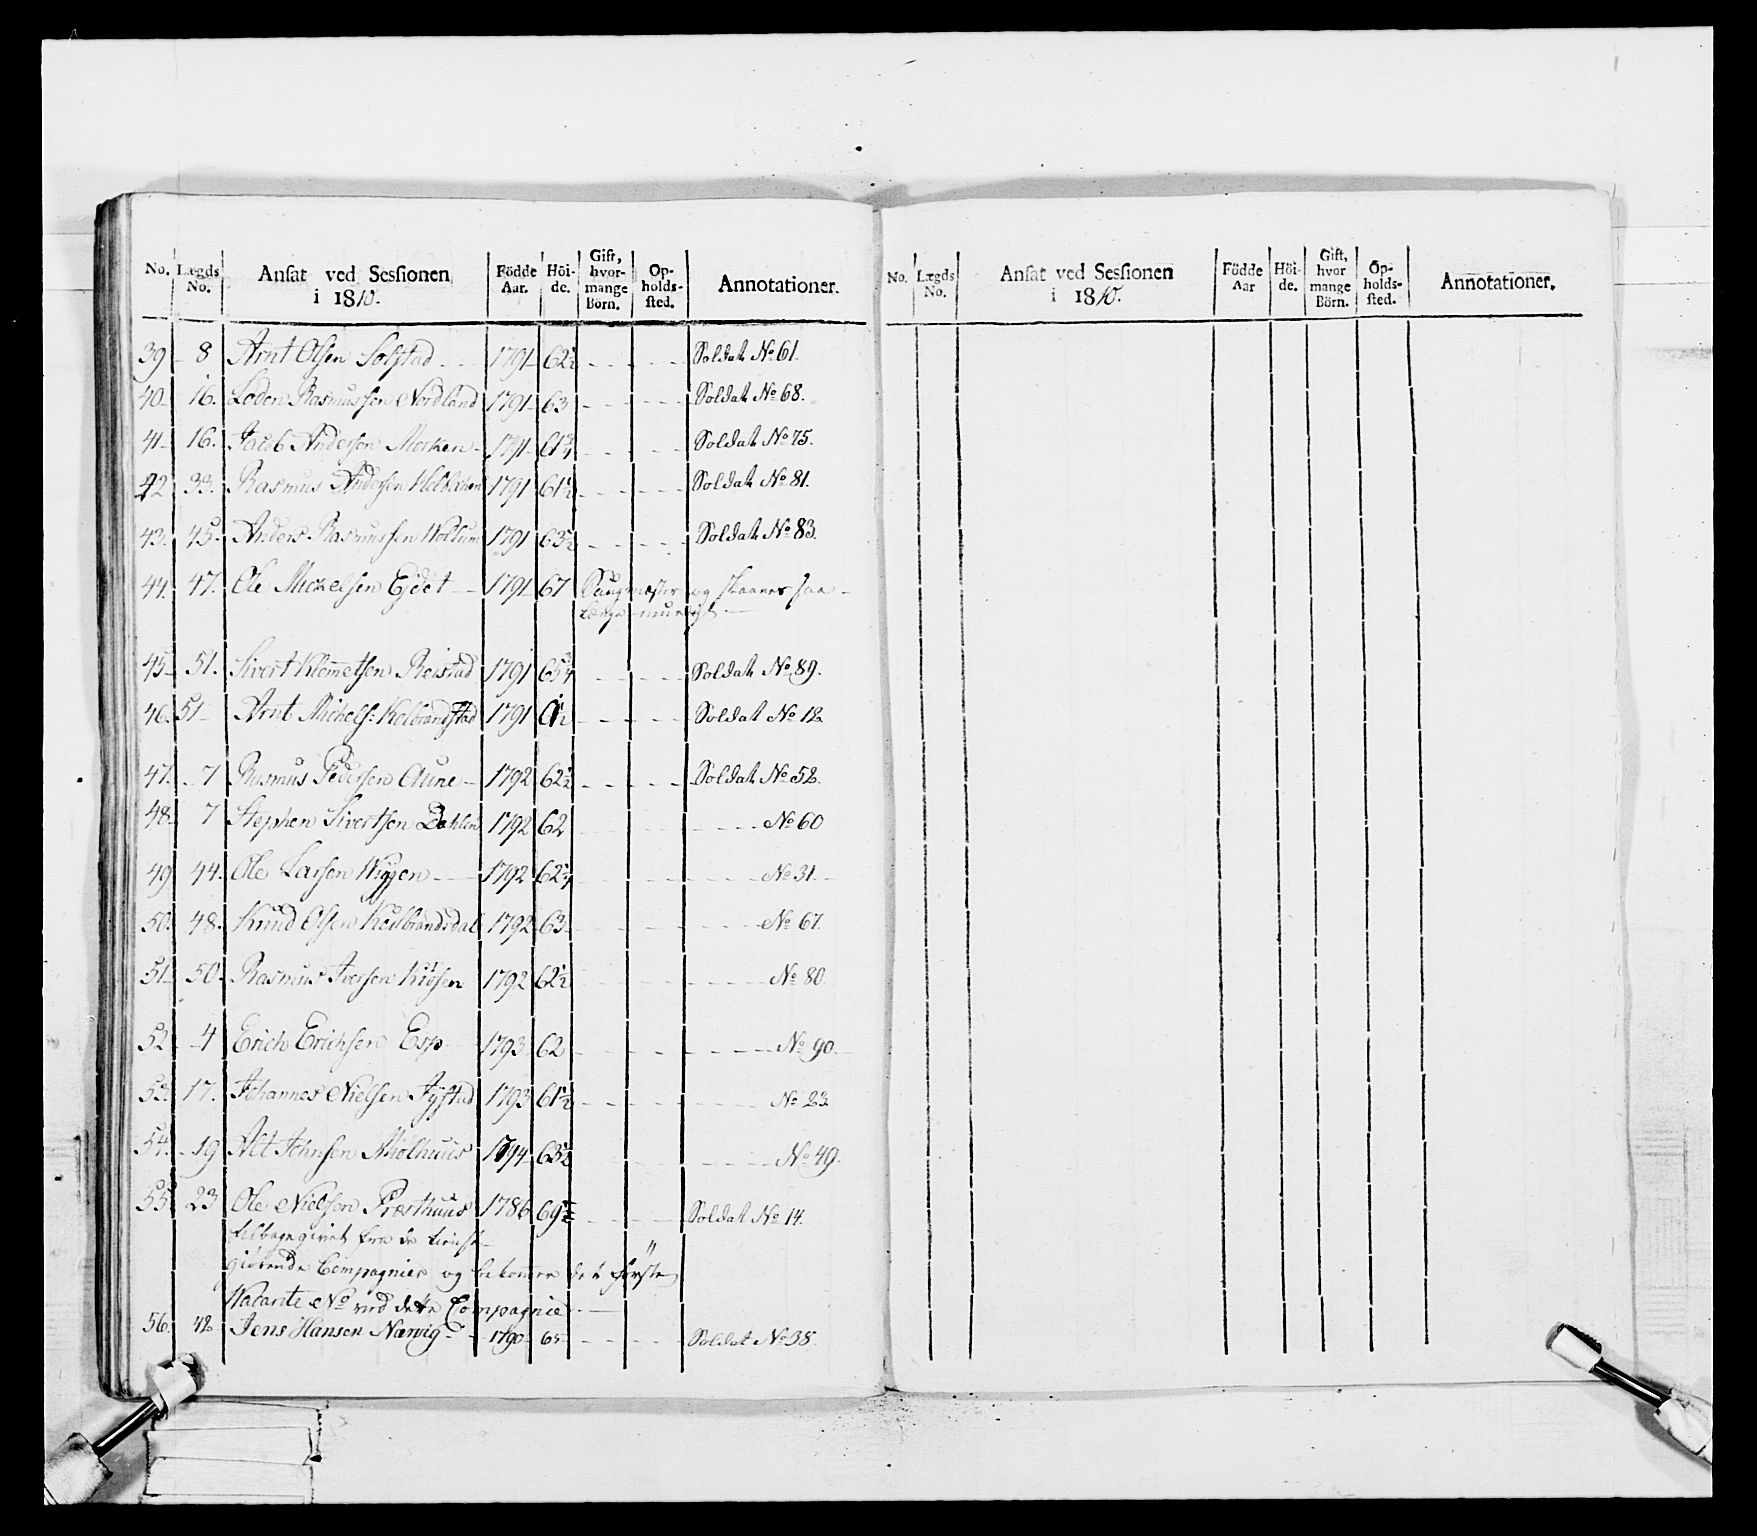 No. Lægds No. Ansat ved Sessionen i 1810. Födde Aar. Höide. Gift, hvormange Börn. Opholdssted. Annotationer.
39 8 Arnt Olsen Solstad 1791 62½ Soldat No 61.
40 16. Loden Rasmussen Nordland 1791 63 Soldat No 68.
41 16. Jacob Andersen Morken 1791 61¾ Soldat No 75.
42 33. Rasmus Andersen 1791 61½ Soldat No 81.
43. 45. Anders Rasmussen Wollum 1791 63½ Soldat No 83.
44. 47. Ole Mickelsen Eidet 1791 67 og skaanes saa
længe mueligt
45 51. Sivert Klemmetsen Reistad 1791 65¾ Soldat No 89.
46. 51 Arnt Michels: Kolbrandstad 1791 Soldat No 12
47. 7 Rasmus Pedersen Aune 1792 62½ Soldat No 52.
48 7 Stephen Sivertsen Dahlen 1792 62 No 60
49 44. Ole Larsen Wiggen 1792 62¼ No 31
50. 48. Knud Olsen Kolbrandsdal 1792 63 No 67.
51 50. Rasmus Iversen 1792 62½ No 80.
52 4 Erich Erichsen Esp 1793 62 No 90
53. 17. Johannes Nielsen Fystad 1793 61½ No 23
54. 19 Alt Johnsen Miolhuus 1794 63½ No 49.
55 23 Ole Nielsen Præsthuus 1786 69½ Soldat No 14.
tilbagegivet fra de tieneste
giörende Compagnier og bekommer det förste
Vacante No ved dette Compagnie
56. 42 Jens Hansen Nærvig 1790 65 Soldat No 38.
No. Lægds No. Ansat ved Sessionen i 1810. Födde Aar Höide. Gift, hvor mange Börn. Opholdssted. Annotationer.